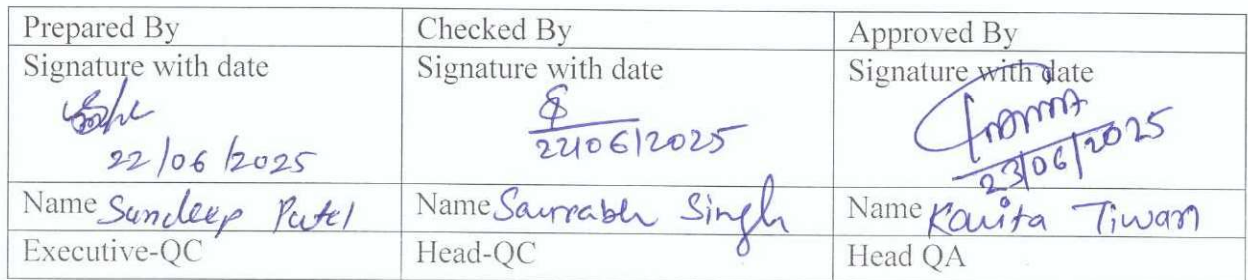 Prepared By
Checked By
Approved By
Signature with date
Signature with date
Signature with date
22/06/2025
22/06/2025
23/06/2025
Name Sundeep Patel
Name Saurabh Singh
Name Kavita Tiwari
Executive-QC
Head-QC
Head QA